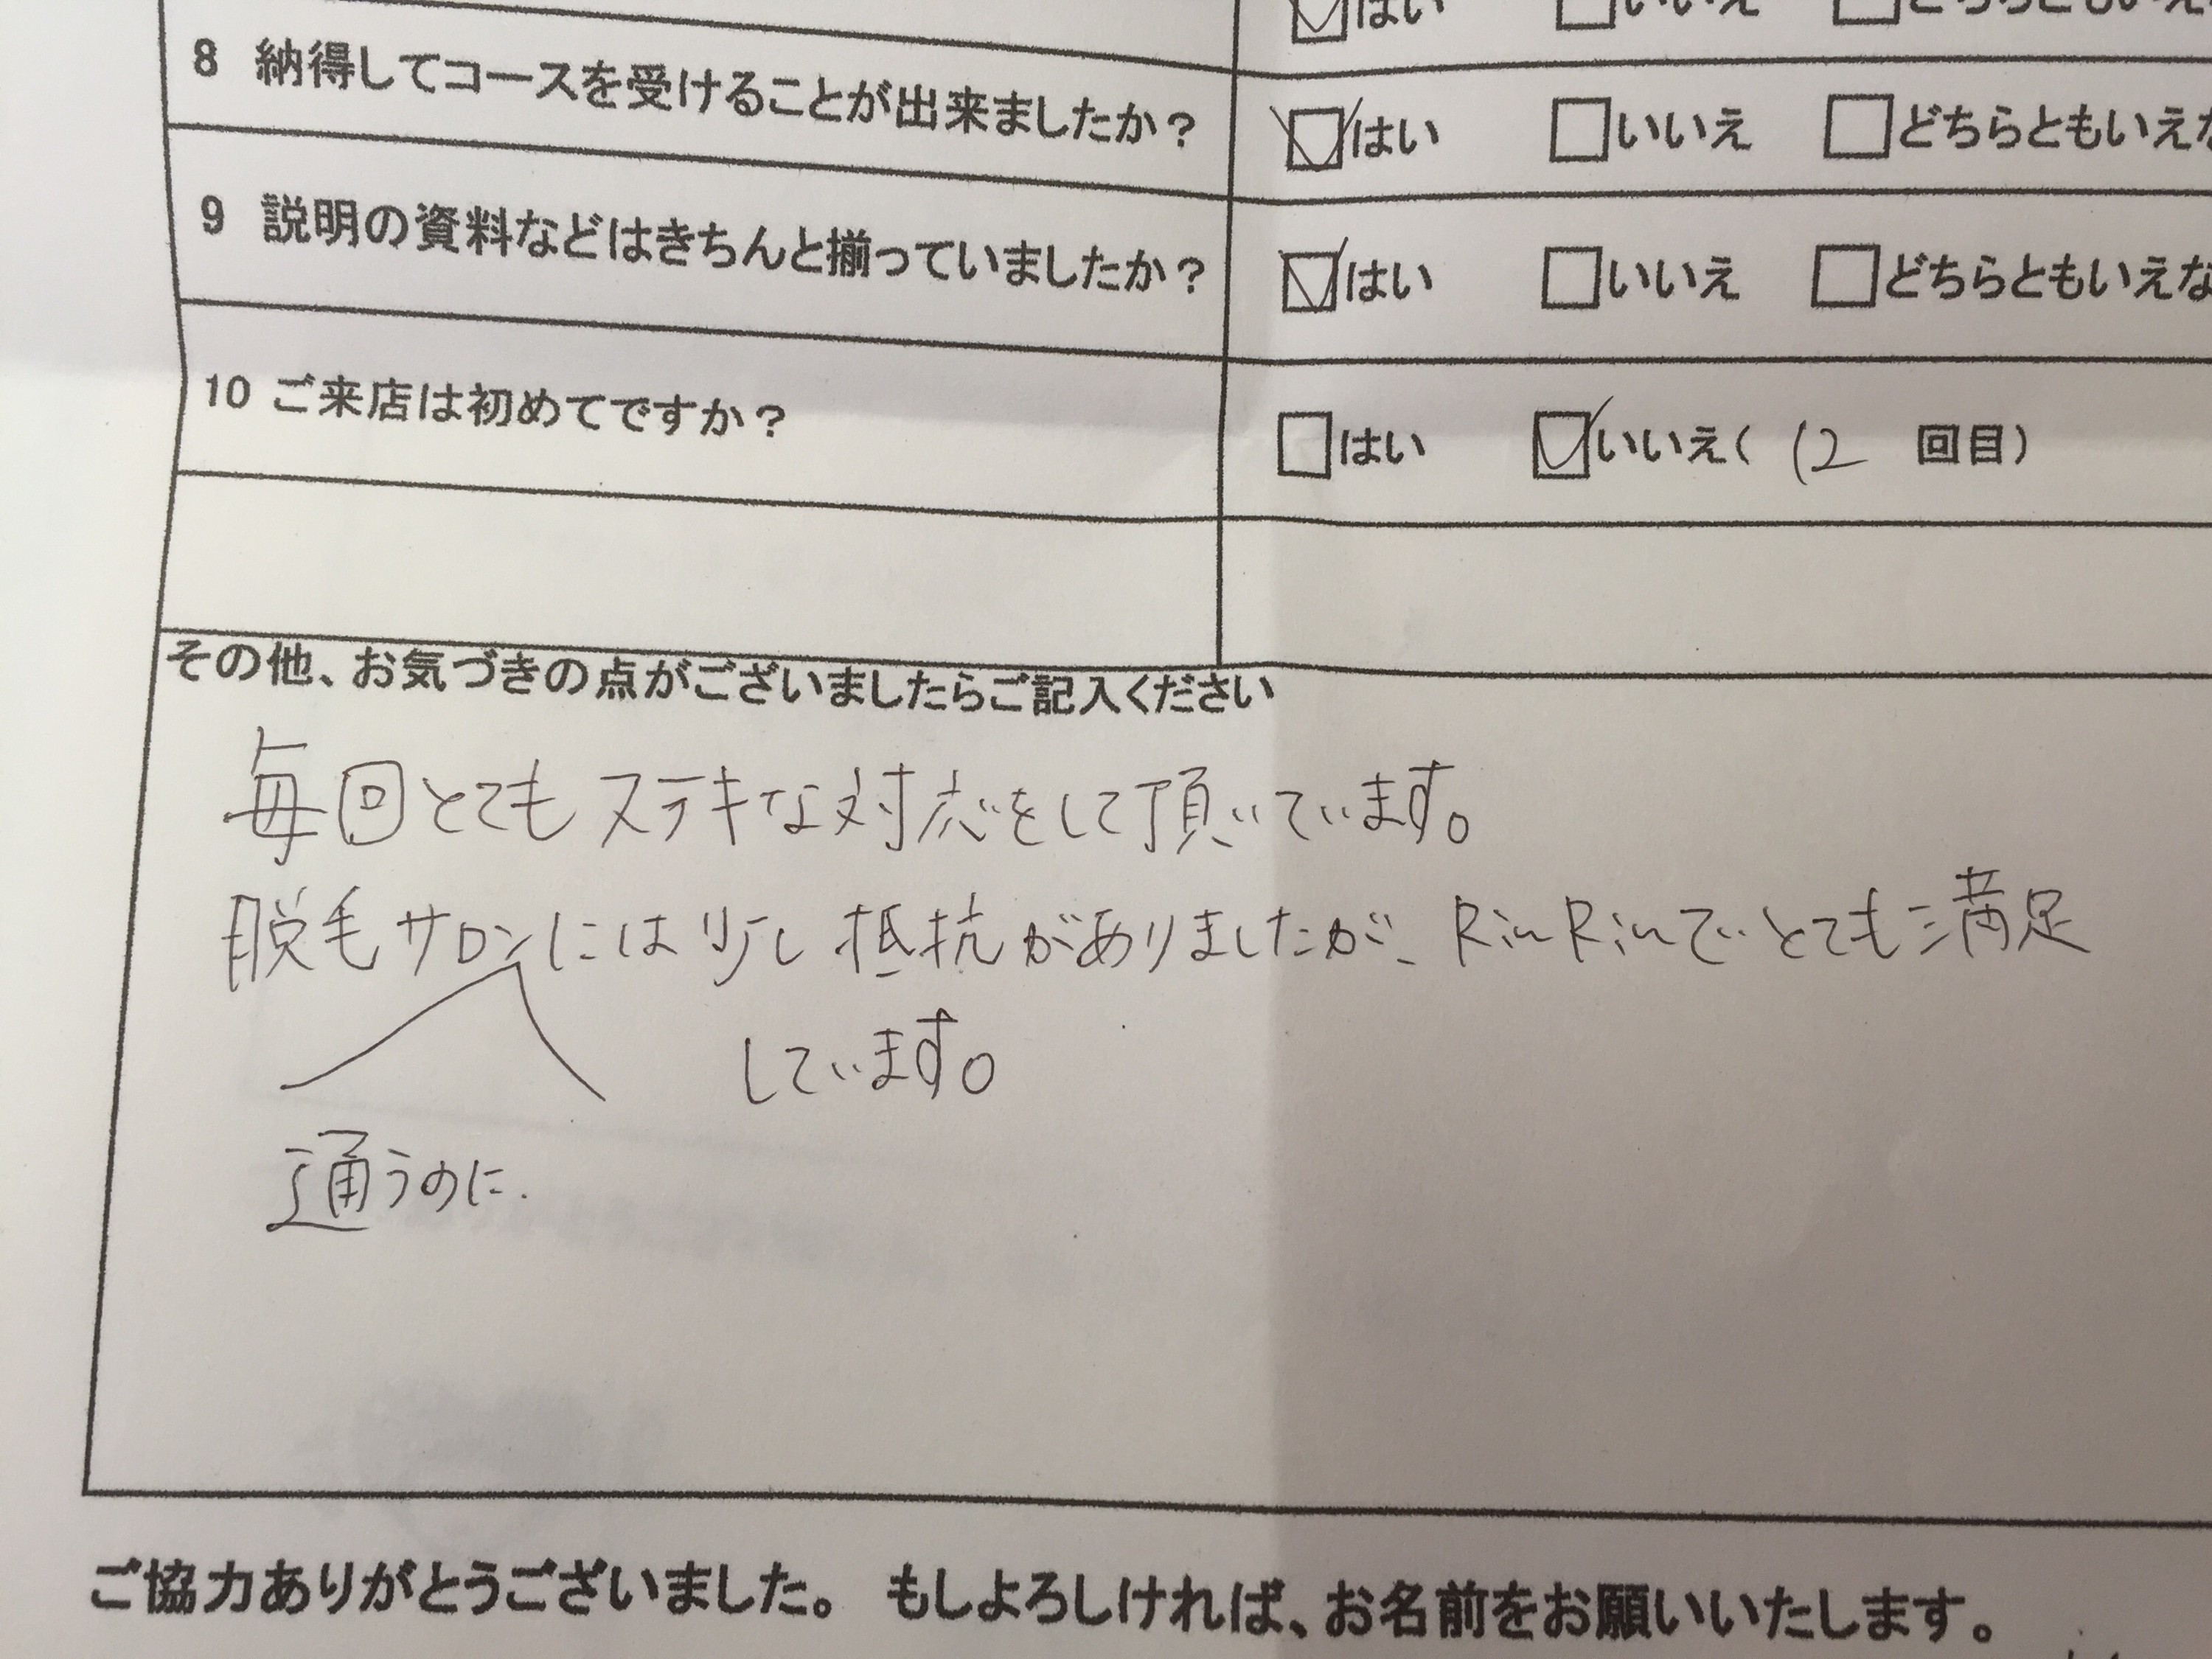 はい いいえ どちらともいえ
8 納得してコースを受けることが出来ましたか? はい いいえ どちらともいえな
9 説明の資料などはきちんと揃っていましたか? はい いいえ どちらともいえな
10 ご来店は初めてですか? はい いいえ( 12 回目)
その他、お気づきの点がございましたらご記入ください
毎回とてもステキな対応をして頂いています。
脱毛サロンには少し抵抗がありましたが、RinRinでとても満足
しています。
通うのに
ご協力ありがとうございました。 もしよろしければ、お名前をお願いいたします。